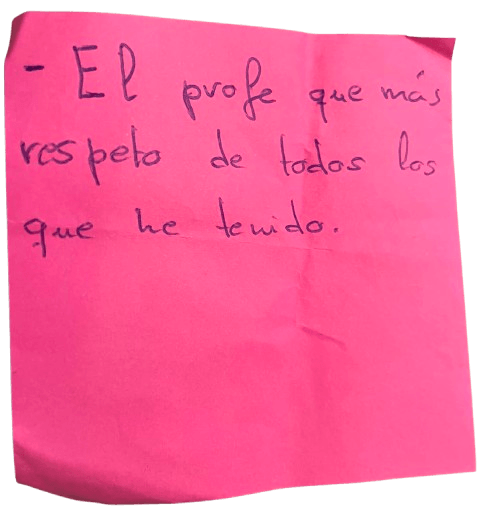 - El profe que más
respeto de todos los
que he tenido.